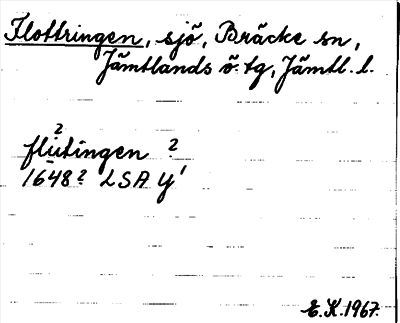 Flottringen, sjö, Bräcke sn,
Jämtlands ö. tg, Jämtl. l.
?
flutingen ?
1648? LSA y'
E.K. 1967.